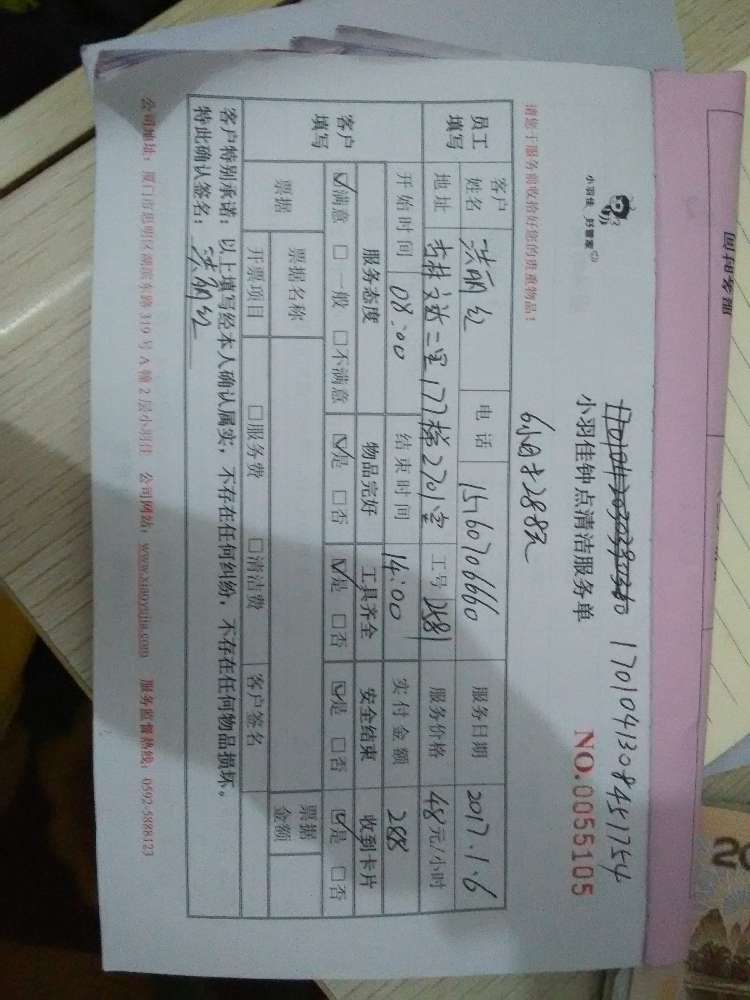 17010413084551754
小羽佳 好管家
小羽佳钟点清洁服务单
NO.0055105
请您于服务前收拾好您的贵重物品!
6小时288元
员工填写
客户姓名 洪丽红 电话 15760706660 服务日期 2017.1.6
地址 二里177梯2701室 工号 2881 服务价格 48元/小时
开始时间 08:00 结束时间 14:00 实付金额 288
客户填写
服务态度 物品完好 工具齐全 安全结束 收到卡片
☑满意 □一般 □不满意 ☑是 □否 ☑是 □否 ☑是 □否 ☑是 □否
票据 票据名称 票据金额
开票项目 □服务费 □清洁费 客户签名
客户特别承诺:以上填写经本人确认属实,不存在任何纠纷,不存在任何物品损坏。
特此确认签名: 洪丽红
公司地址:厦门市思明区湖滨东路319号A幢2层小羽佳 公司网站:www.xiaoyujia.com 服务监督热线:0592-5888123
20